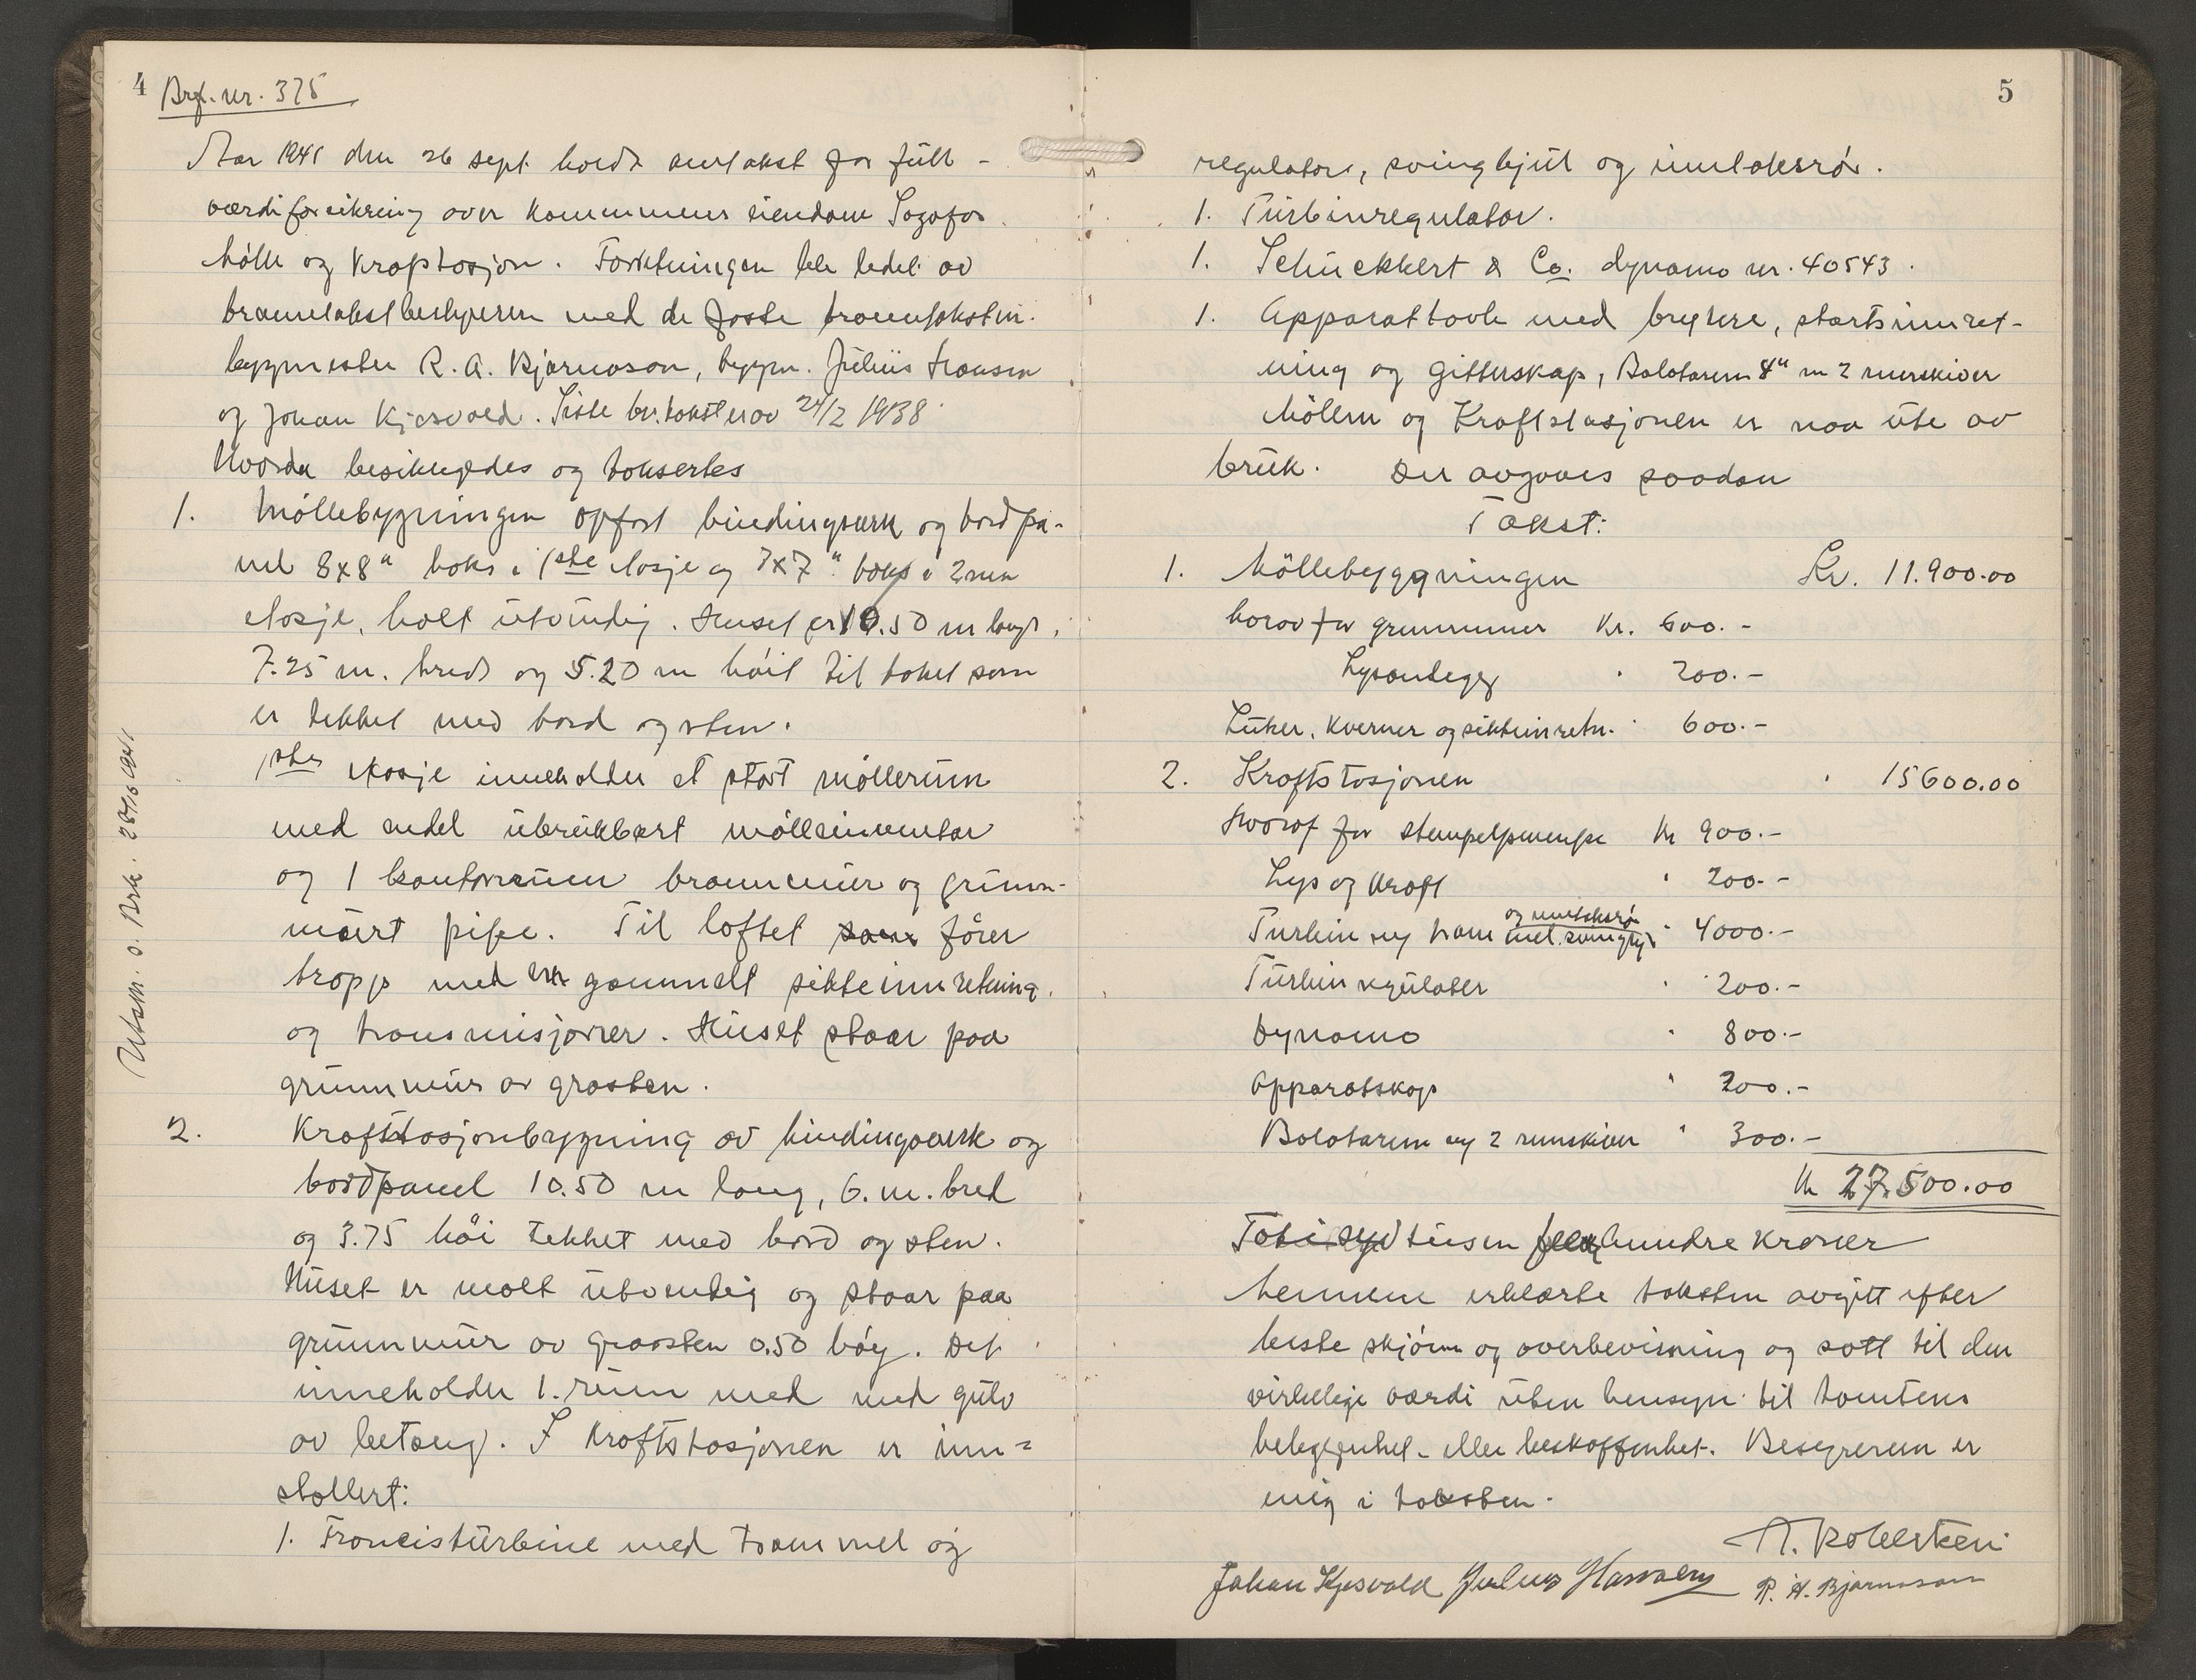 4 Brf. nr. 375
Aar 1941 den 26 sept. holdt omtakst for full-
værdiforsikring over kommunens eiendom Sagafos
Mølle og Kraftstasjon. Forretningen ble ledet av
branntakstbestyreren med de faste branntakstm.
byggmester R. A. Bjarnason, byggm. Julius Hansen
og Johan Kjosvold. Siste br. takst er av 24/2 1938
Hvorda besiktigedes og taksertes
1. Møllebygningen opført bindingsverk og bordpa-
nel 8x8" boks i 1ste etasje og 7x7" boks i 2nen
etasje, malt utvendig. Huset er 10.50 m langt,
7.25 m. bredt og 5.20 m høit til taket som
er tekket med bord og sten.
1ste etasje inneholder et stort møllerum
med endel ubrukbart mølleinventar
og 1 kontorrum brannmur og grunn-
muret pipe. Til loftet som fører
trapp med en gammelt sikteinnretning
og transmisjoner. Huset staar paa
grunnmur av graasten.
2. Kraftstasjonbygning av bindingsverk og
bordpanel 10.50 m lang, 6. m. bred
og 3.75 høi tekket med bord og sten.
Huset er malt utvendig og staar paa
grunnmur av graasten 0.50 høy. Det
inneholder 1. rum med med gulv
av betong. I Kraftstasjonen er inn=
stallert:
1. Francisturbine med trommel og
Utsm. s. Brk. 28/10 1941
5
regulator, svinghjul og inntaksrør.
1. Turbinregulator.
1. Schuckkert & Co. dynamo nr. 40543.
1. Apparattavle med brytere, startsinnret-
ning og gitterskap, Balatarem 8" m 2 remskiver
Møllen og Kraftstasjonen er naa ute av
bruk. Der avgaves saadan
Takst:
1. Møllebyggningen Kr. 11.900.00
hvorav for grunnmur Kr. 600.-
Lysanlegg " 200.-
Luker, Kverner og sikteinretn. " 600.-
2. Kraftstasjonen " 15600.00
Hvoraf for stempelpumpe Kr 900.-
Lys og Kraft " 200.-
Turbin og tram og inntaksrør inel. svinghj. " 4000.-
Turbinregulator " 200.-
Dynamo " 800.-
Apparatskap " 200.-
Balatarem og 2 remskiver " 300.-
Kr 27.500.00
Totisyvtusen fem hundre Kroner
Mennene erklærte taksten avgitt efter
beste skjønn og overbevisning og satt til den
virkelige værdi uten hensyn til tomtens
beliggenhet- eller beskaffenhet. Bestyreren er
enig i taksten.
A. Robertsen
Johan Kjosvold Julius Hansen R. A. Bjarnason